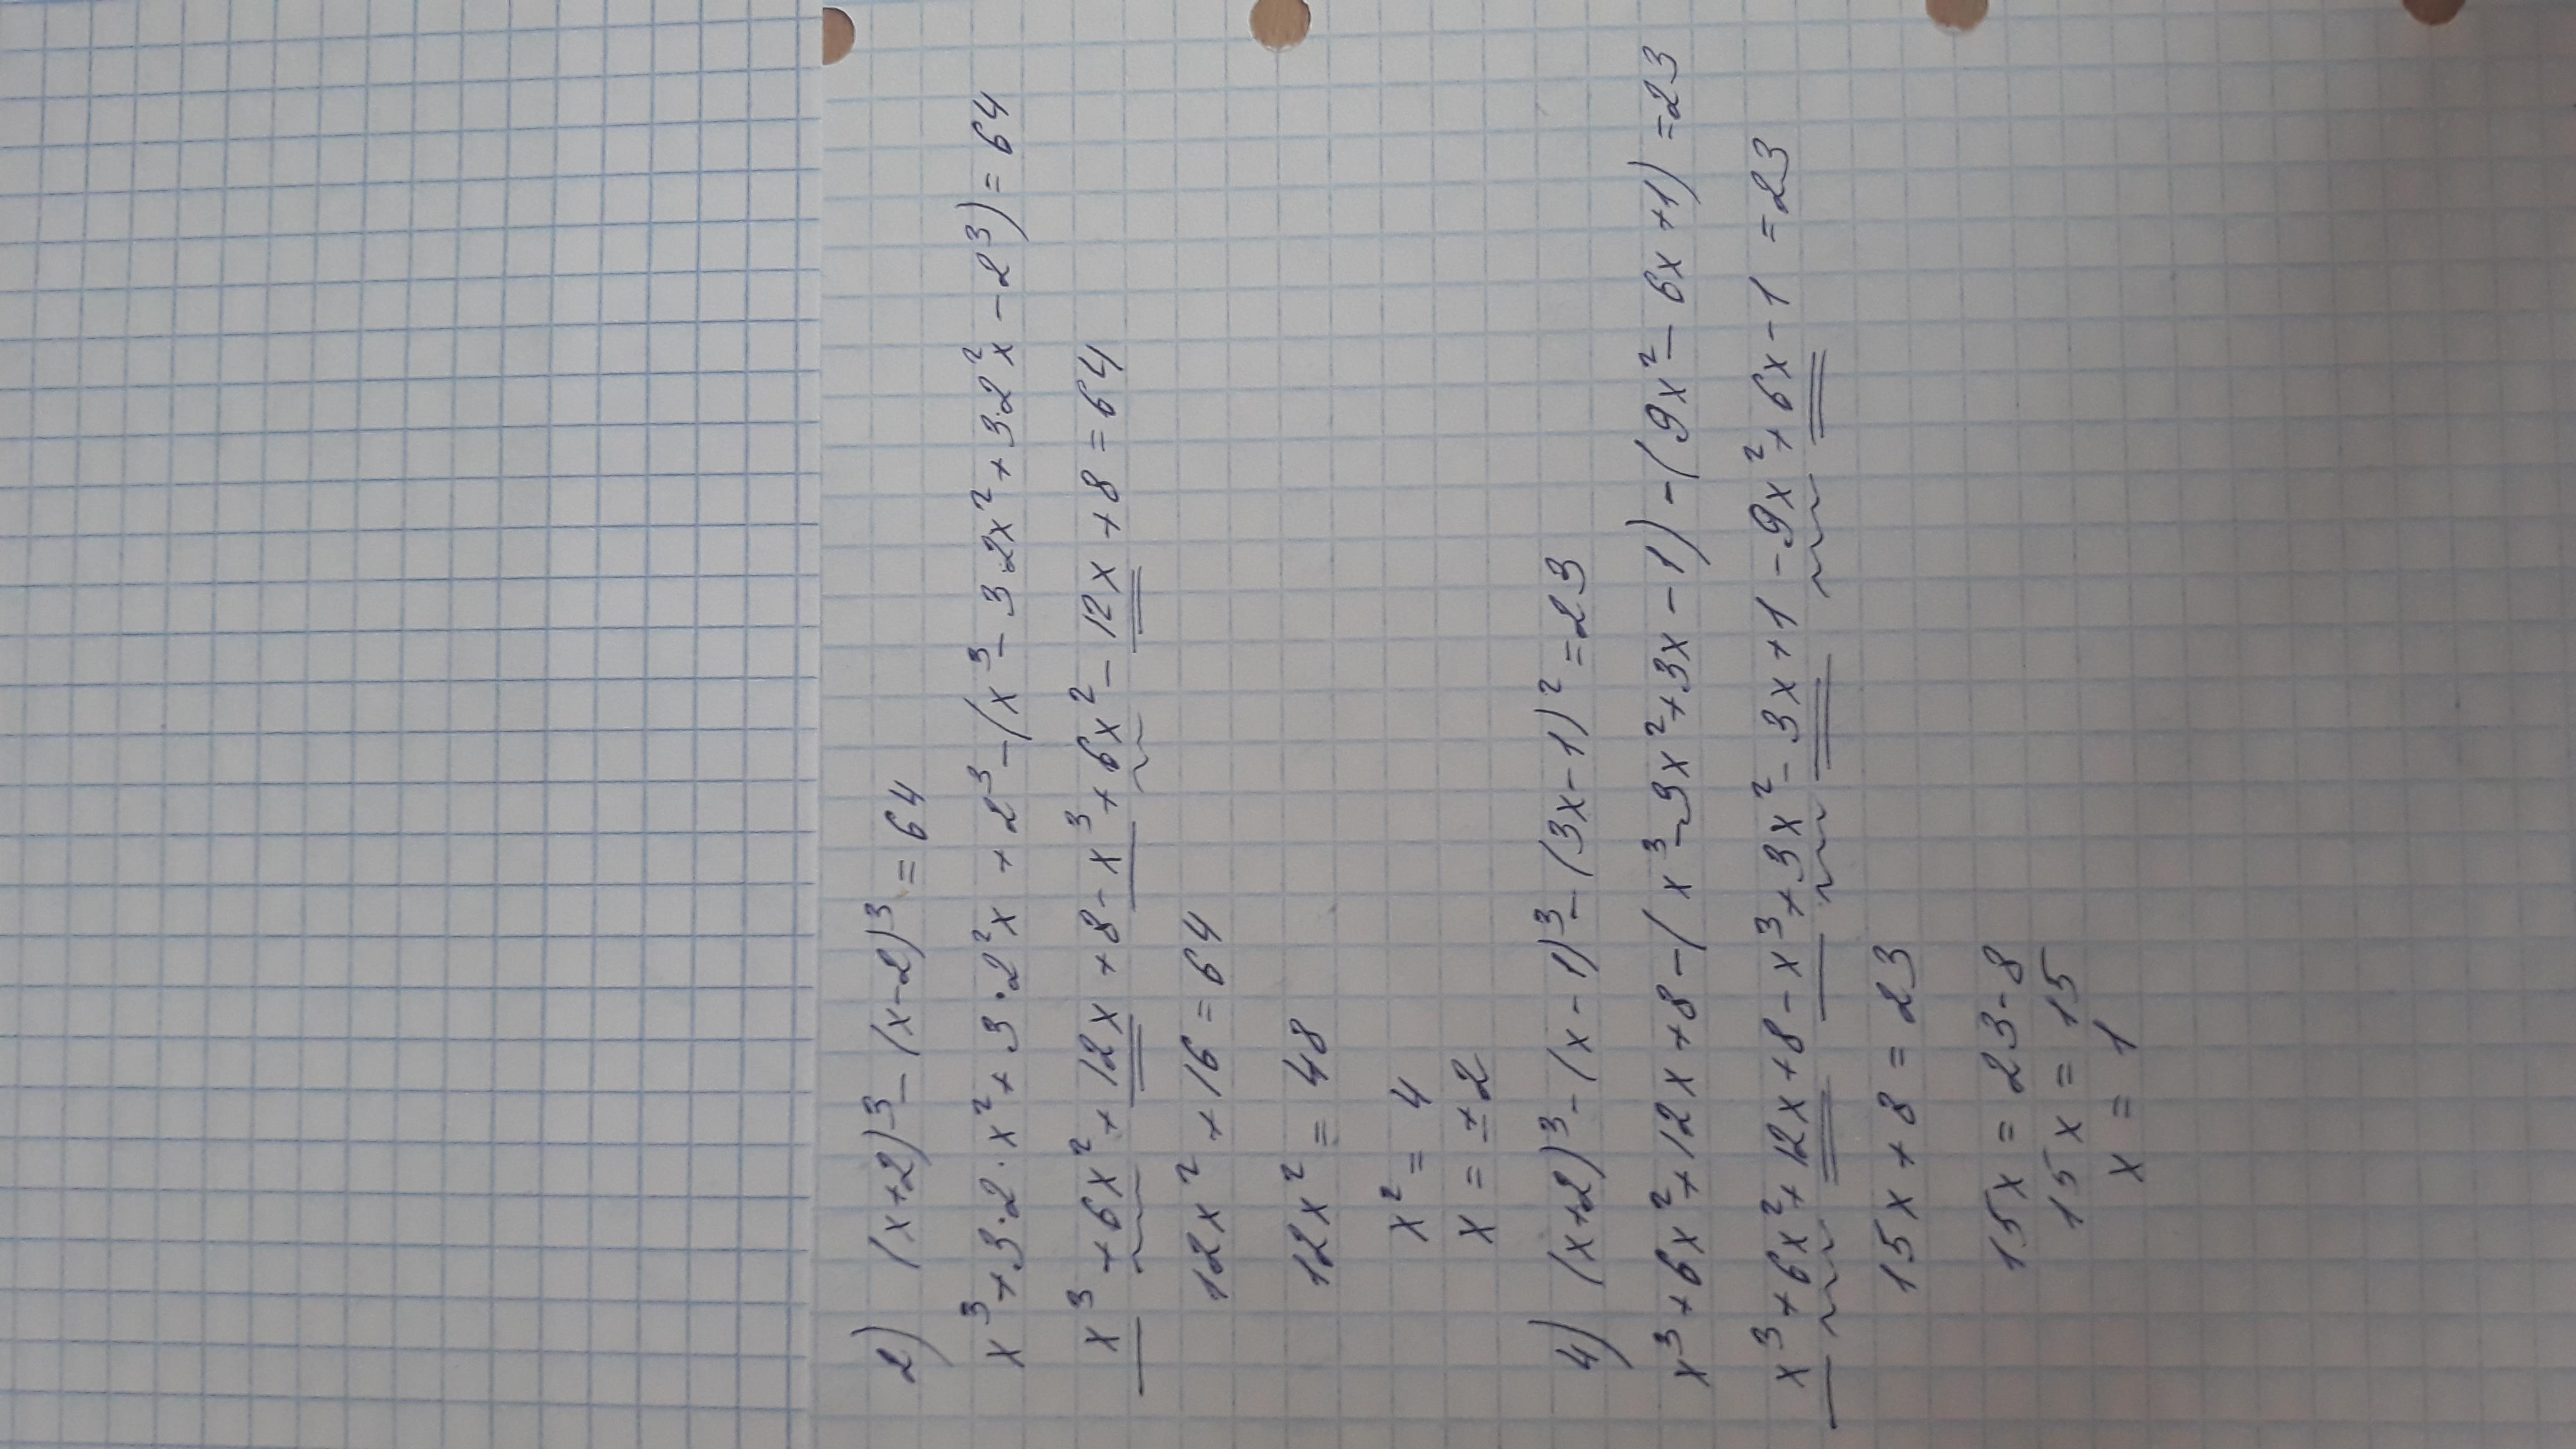 2) (x+2)³ - (x-2)³ = 64
x³ + 3·2·x² + 3·2²x + 2³ - (x³ - 3·2x² + 3·2²x - 2³) = 64
x³ + 6x² + 12x + 8 - x³ + 6x² - 12x + 8 = 64
12x² + 16 = 64
12x² = 48
x² = 4
x = ±2
4) (x+2)³ - (x-1)³ - (3x-1)² = 23
x³ + 6x² + 12x + 8 - (x³ - 3x² + 3x - 1) - (9x² - 6x + 1) = 23
x³ + 6x² + 12x + 8 - x³ + 3x² - 3x + 1 - 9x² + 6x - 1 = 23
15x + 8 = 23
15x = 23 - 8
15x = 15
x = 1